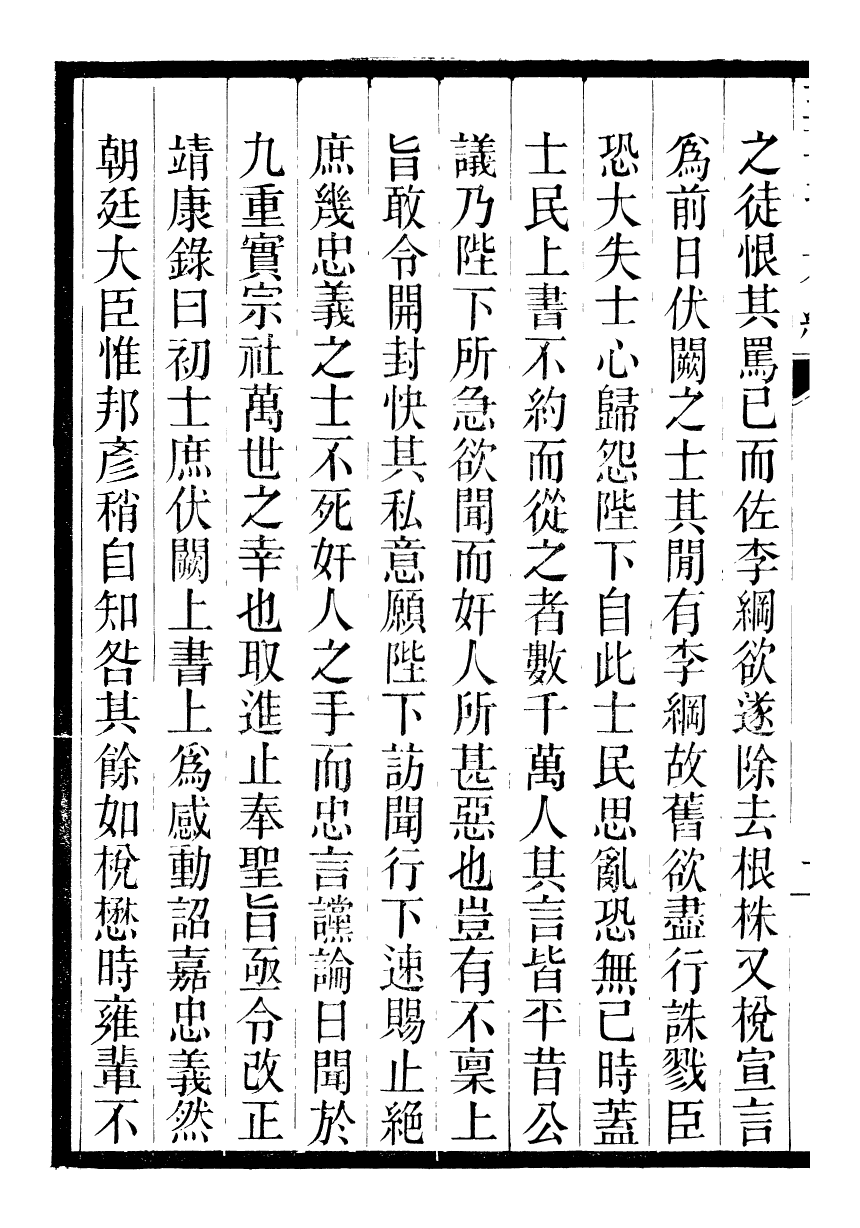 之徒恨其罵已而佐李綱欲遂除去根株又梲宣言
爲前日伏闕之士其閒有李綱故舊欲盡行誅戮臣
恐大失士心歸怨陛下自此士民思亂恐無已時蓋
士民上書不約而從之者數千萬人其言皆平昔公
議乃陛下所急欲聞而奸人所甚惡也豈有不稟上
旨敢令開封快其私意願陛下訪聞行下速賜止絕
庶幾忠義之士不死奸人之手而忠言讜論日聞於
九重實宗社萬世之幸也取進止奉聖旨亟令改正
靖康錄曰初士庶伏闕上書上爲感動詔嘉忠義然
朝廷大臣惟邦彥稍自知咎其餘如梲懋時雍輩不